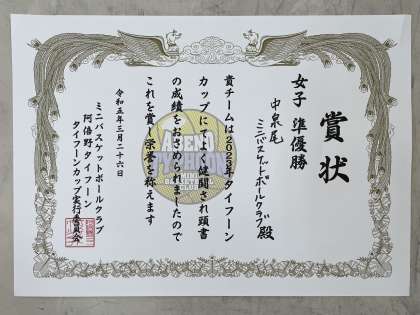 賞状
女子 準優勝
中泉尾
ミニバスケットボールクラブ殿
貴チームは2023年タイフーン
カップにてよく健闘され頭書
の成績をおさめられましたので
これを賞し栄誉を称えます
令和五年三月二十六日
ミニバスケットボールクラブ
阿倍野タイフーン
タイフーンカップ実行委員会
ABENO
TYPHOON
MINI
BASKETBALL
CLUB